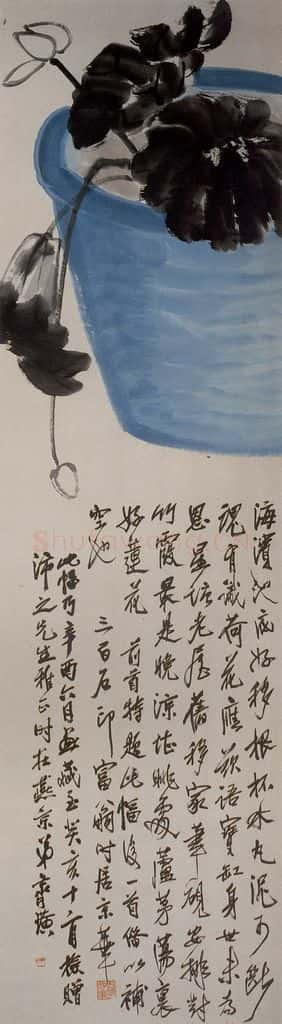 海濱池底好移根杯水丸泥可斷
魂有識荷花應欲語寶缸身世未為
恩星塘老屋舊移家筆硯安排對
竹霞最是晚涼堪眺處蘆茅蕩裏
好蓮花 前首特題此幅後一首借以補
空也 三百石印富翁時居京華
此幅乃辛酉六月畫藏至癸亥十一月檢贈
沛之先生雅正時在燕京弟齊璜